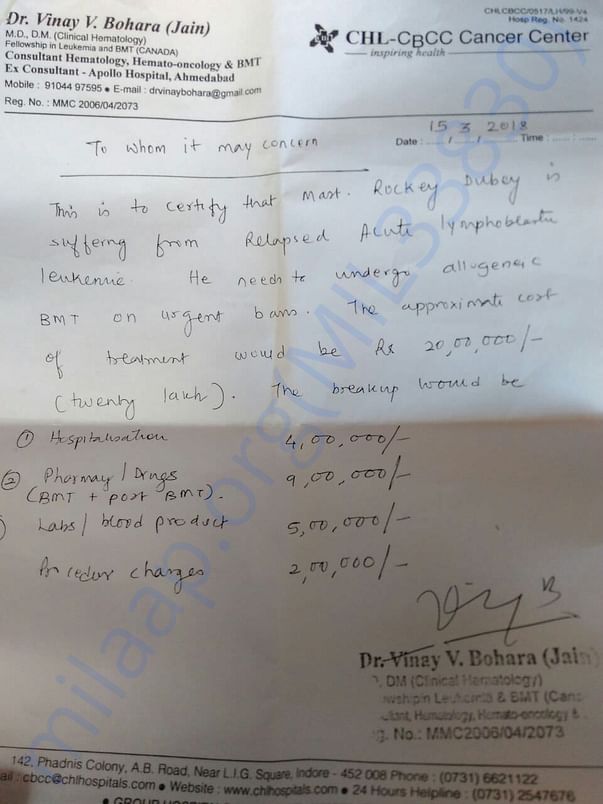 CHLCBCC/0517/LH/99-V4
Hosp Reg. No. 1424
Dr. Vinay V. Bohara (Jain)
M.D., D.M. (Clinical Hematology)
Fellowship in Leukemia and BMT (CANADA)
Consultant Hematology, Hemato-oncology & BMT
Ex Consultant - Apollo Hospital, Ahmedabad
Mobile : 91044 97595 ● E-mail : drvinaybohara@gmail.com
Reg. No. : MMC 2006/04/2073
CHL-CBCC Cancer Center
inspiring health
Date : 15/3/2018 Time :
To whom it may concern
This is to certify that Mast. Rockey Dubey is
suffering from Relapsed Acute lymphoblastic
leukemia. He needs to undergo allogeneic
BMT on urgent basis. The approximate cost
of treatment would be Rs 20,00,000/-
(twenty lakh). The breakup would be
① Hospitalisation 4,00,000/-
② Pharmacy / Drugs 9,00,000/-
(BMT + post BMT).
Labs / blood product 5,00,000/-
Procedure charges 2,00,000/-
Dr. Vinay V. Bohara (Jain)
DM (Clinical Hematology)
Leukemia & BMT
Hematology, Hemato-oncology &
No.: MMC2006/04/2073
142, Phadnis Colony, A.B. Road, Near L.I.G. Square, Indore - 452 008 Phone : (0731) 6621122
ail : cbcc@chlhospitals.com ● Website : www.chlhospitals.com ● 24 Hours Helpline : (0731) 2547676
milaap.org(MIL33830)